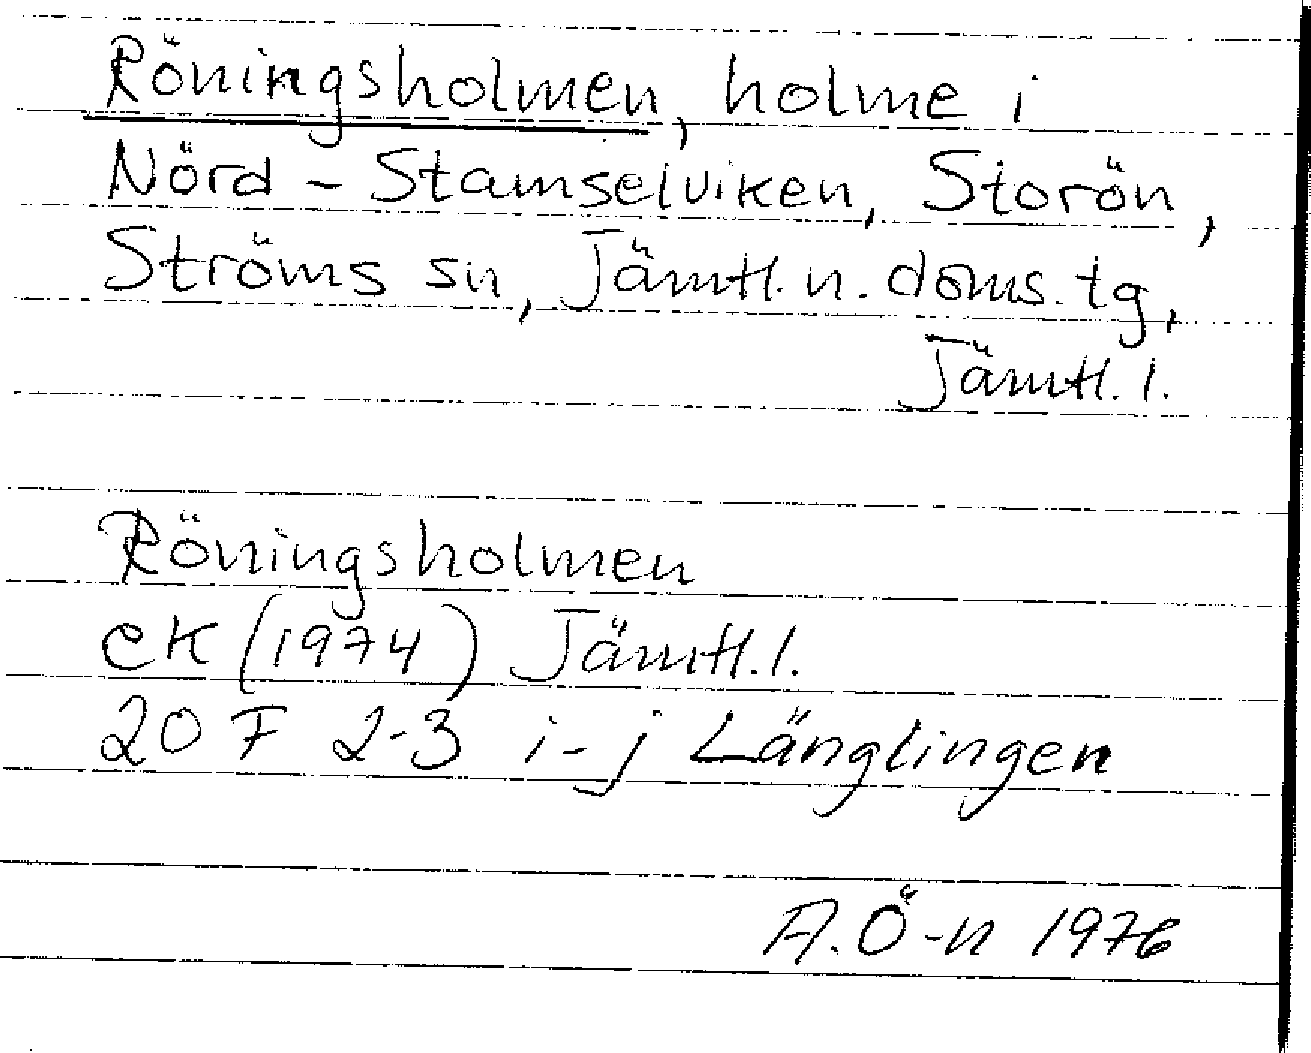 Röningsholmen, holme i
Nörd-Stamselviken, Storön,
Ströms sn, Jämtl. n. doms. tg,
Jämtl. l.
Röningsholmen
eK (1974) Jämtl. l.
20 F 2-3 i-j Länglingen
A. Ö-n 1976